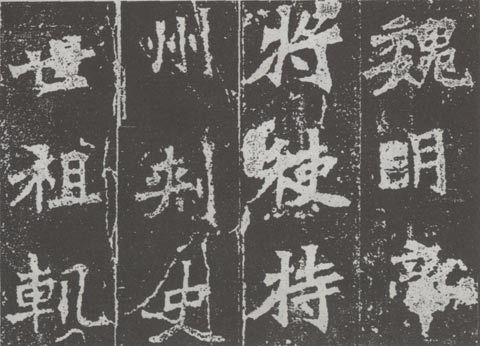 魏明
將使持
州刺史
世祖軌